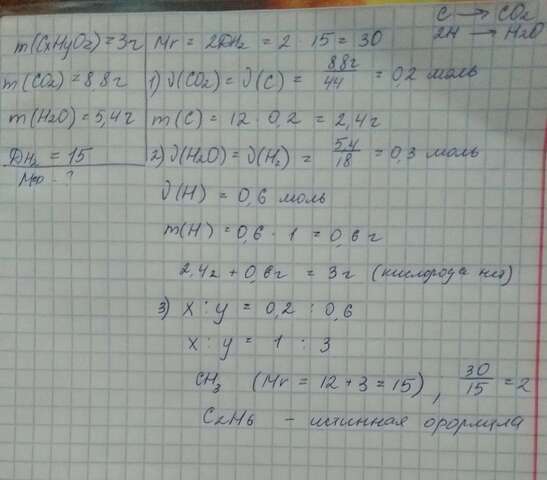 C → CO2
2H → H2O
m(CxHyOz) = 3г
m(CO2) = 8,8г
m(H2O) = 5,4г
DH2 = 15
Mr = 2DH2 = 2 · 15 = 30
1) ν(CO2) = ν(C) = 8,8г/44 = 0,2 моль
m(C) = 12 · 0,2 = 2,4г
2) ν(H2O) = ν(H2) = 5,4/18 = 0,3 моль
ν(H) = 0,6 моль
m(H) = 0,6 · 1 = 0,6 г
2,4г + 0,6г = 3г (кислорода нет)
3) x : y = 0,2 : 0,6
x : y = 1 : 3
CH3 (Mr = 12 + 3 = 15), 30/15 = 2
C2H6 - истинная формула